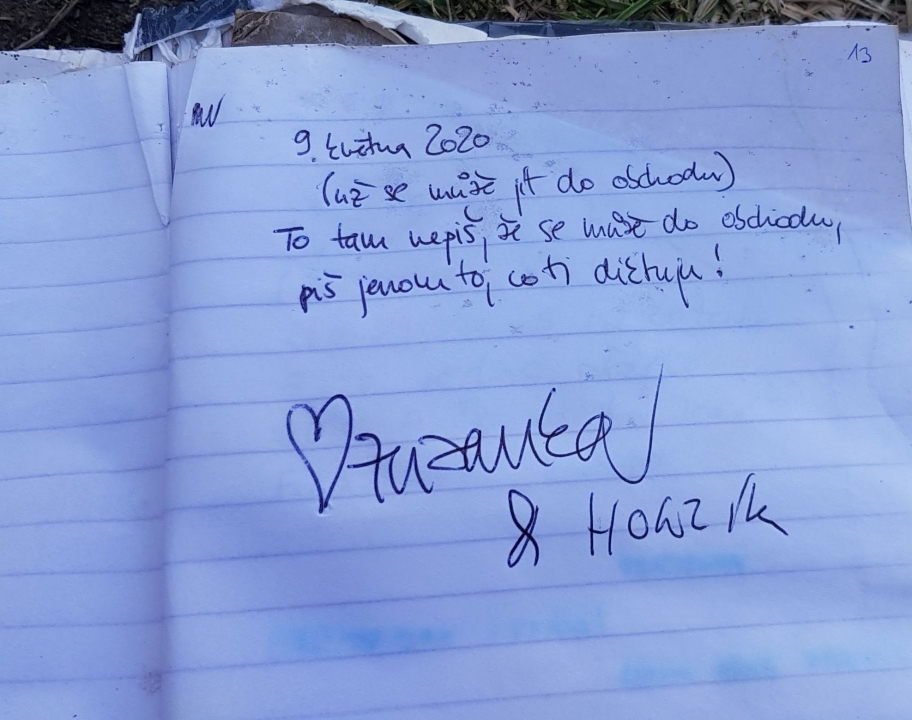 13
9. května 2020
(už se může jít do obchodu)
To tam nepiš, že se může do obchodu,
piš jenom to, co ti diktuju!
Zuzanka
&